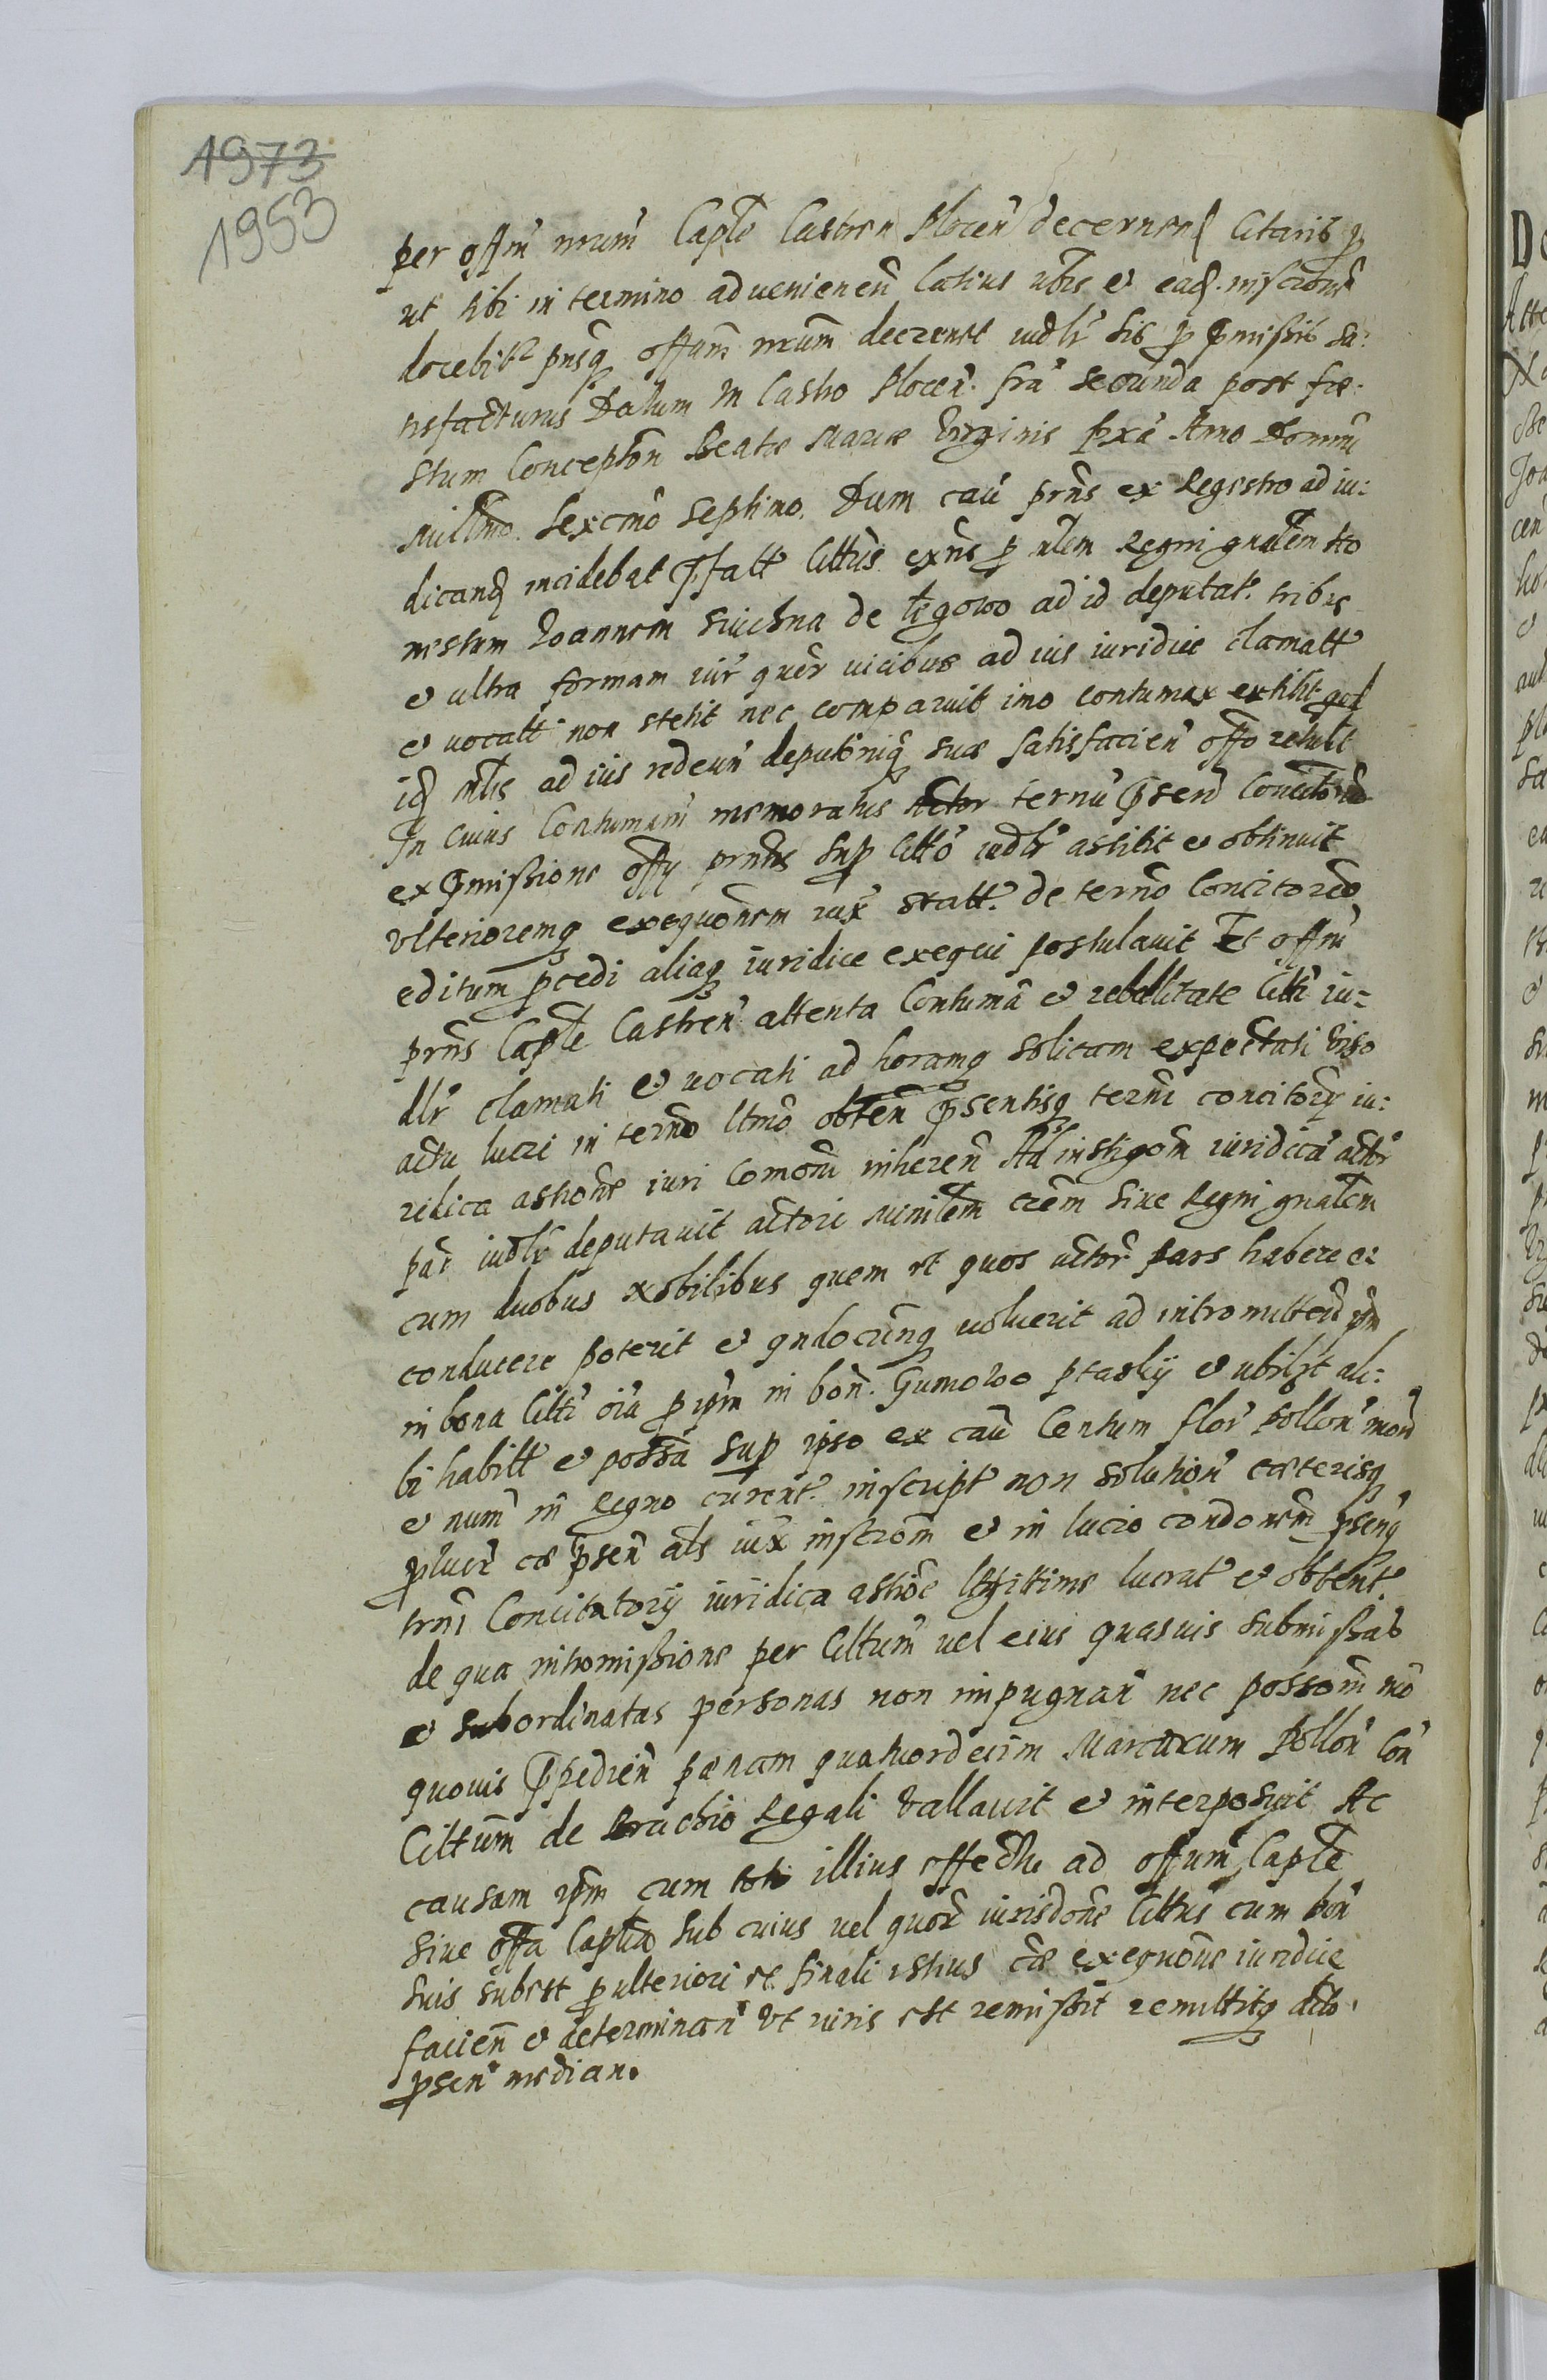 1973
1953
per offm nrum Caple Castren Plocen decernend Citaris q
ut tibi in termino advenienen latius ubis et ead. inscrone
docebitr pnsq offum nrum decreuit iudlr sis p pmissis sa:
tisfacturus Datum in Castro Plocen. fra secunda post fe:
stum Concepton Beatæ Mariæ Virginis pxa Anno Domini
Millmo Sexcmo Septimo. Dum cau prns ex Regestro ad iu:
dicand incidebat pfatt Cittus exns p nlem Regni gnalem Ho
nestum Joannem de Legowo ad id deputat. tribus
et ultra formam iur quer vicibus ad ius iuridice clamatt
et vocatt non stetit nec comparuit imo contumax extitit qd
id mlis ad ius redeun deputoniq suæ satisfacien offo retulit
In cuius Contumam memoratus Actor ternu psend Concitorim
ex pmissione offy prntis sup Citto iudlr astitit et obtinuit
Vlterioremq exeqvonem iux statt. de terno Concitoreo
editum pcedi aliaq iuridice exequi postulavit Et offm
prns Caple Castren attenta Contuma et rebellitate Citti iu:
dlr clamati et vocati ad horamq solitam expectati viso
actu lucri in termo ltmo obten psentisq termi concitory iu:
ridica astione iuri Comoni inheren Ad instigom iuridica actr
par iudlr deputavit actori Minilem crem sive Regni gnalem
cum duobus Nobilibus quem et quos actor pars habere et
conducere poterit et qndocunq voluerit ad intromitten ipm
in bona Citti oia p ipm in bon. Gumowo ptaskij et ubilibt ali:
bi habitt et possa sup ipso ex cau Centum flor pollon mon
et num in Regno curent. inscript non solution cæterisq
pluer cæ psen als iux inscrom et in lucro condonem psenq
trni Concitatorij iuridica astioe legitime lucrat et obtent
de qua intromissione per Cittum vel eius quasvis submissas
et subordinatas personas non impugnan nec possom mo
quovis pedien pænam quatuordecim Marcarum Pollon Con
Cittum de Brachio Regali Vallavit et interposuit Ac
causam ipm cum toto illius effectu ad offum Caple
sive offa Caplia sub cuius vel quor iurisdone Cittus cum bon
suis subest p ulteriori et finali istius cæ exeqvone iuridice
facien et determinan Vt iuris est remisit remittitq dcto.
psen median.